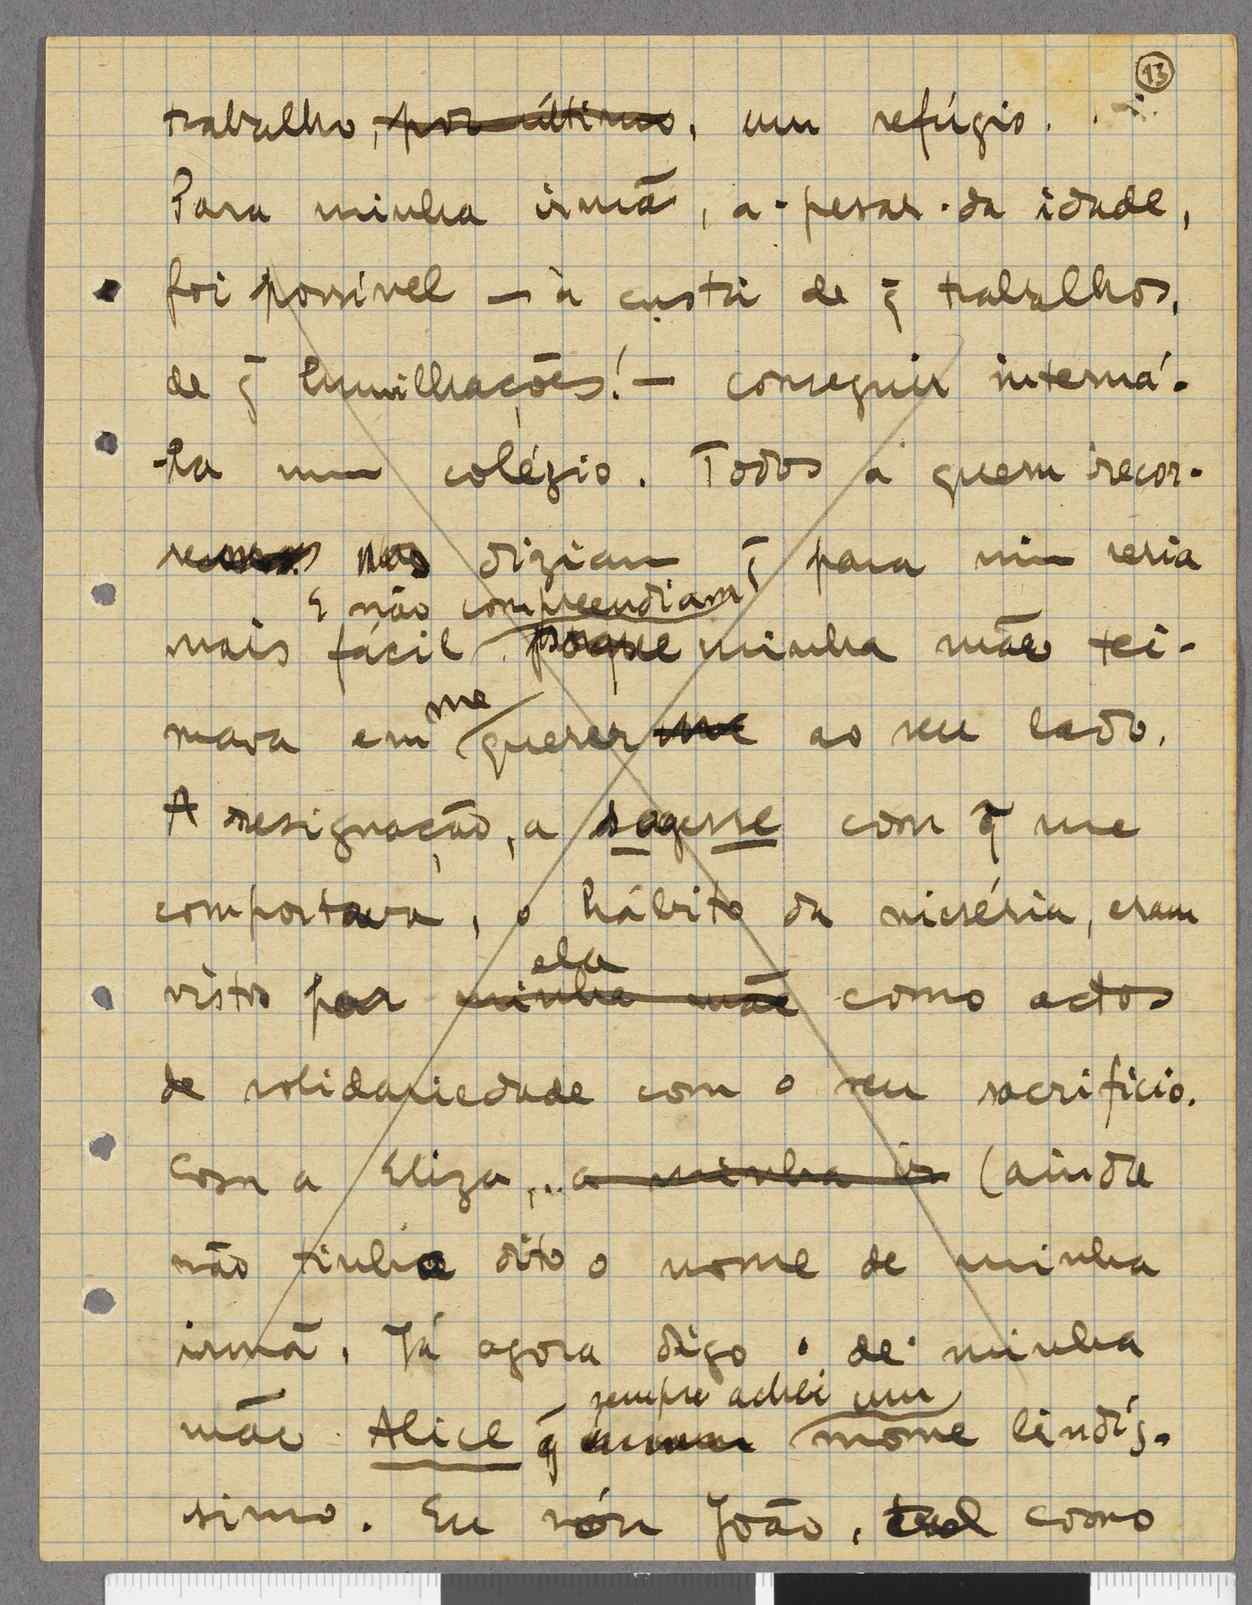 13
trabalho, por último, um refúgio.
Para minha irmã, a-pesar-da idade,
foi possível — à custa de q̃ trabalhos,
de q̃ humilhações! — conseguir interná-
-la num colégio. Todos a quem recor-
reu nos diziam q̃ para mim seria
E não compreendiam q̃
mais fácil. porque minha mãe tei-
me
mava em querer me ao seu lado.
A resignação, a sagesse com q̃ me
comportava, o hábito da miséria, eram
ela
vistos por minha mãe como actos
de solidariedade com o seu sacrifício.
Com a Eliza, .. a minha ir (ainda
não tinha dito o nome de minha
irmã. Já agora digo o de minha
sempre achei um
mãe Alice q̃ nome lindís-
simo. Eu sou João, tal como